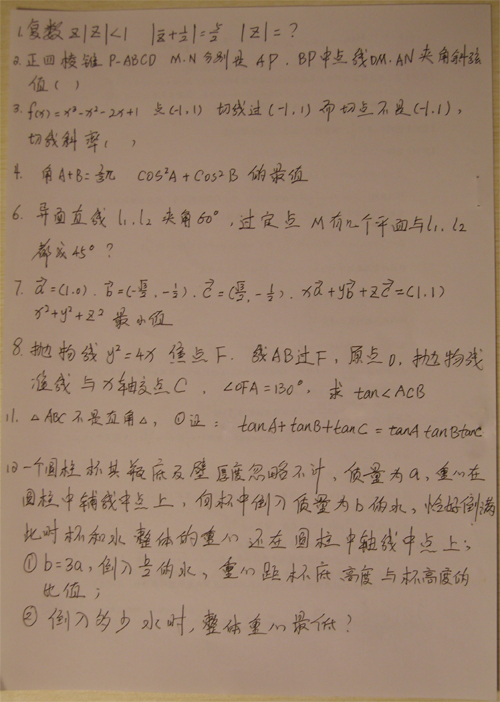 1. 复数 z |z|<1 |z̄+1/z|=5/2 |z|=?
2. 正四棱锥 P-ABCD M.N分别是AP.BP中点线DM.AN夹角斜弦
值( )
3. f(x)=x³-x²-2x+1 点(-1,1) 切线过(-1,1)而切点不是(-1,1),
切线斜率( )
4. 角A+B= cos²A+cos²B的最值
6. 异面直线l₁.l₂夹角60°,过定点M有几个平面与l₁.l₂
都成45°?
7. a⃗=(1.0).b⃗=(-√3/2,-1/2).c⃗=(√3/2,-1/2).xa⃗+yb⃗+zc⃗=(1.1)
x²+y²+z²最小值
8. 抛物线y²=4x 焦点F.线AB过F,原点O,抛物线
准线与x轴交点C.∠OFA=130°,求tan<ACB
11. △ABC不是直角△,①证: tanA+tanB+tanC=tanAtanBtanC
10 一个圆柱杯其瓶底及壁厚度忽略不计,质量为a,重心在
圆柱中轴线中点上,向杯中倒入质量为b的水,恰好倒满
此时杯和水整体的重心还在圆柱中轴线中点上;
①b=3a,倒入的水,重心距杯底高度与杯高度的
比值;
②倒入多少水时,整体重心最低?